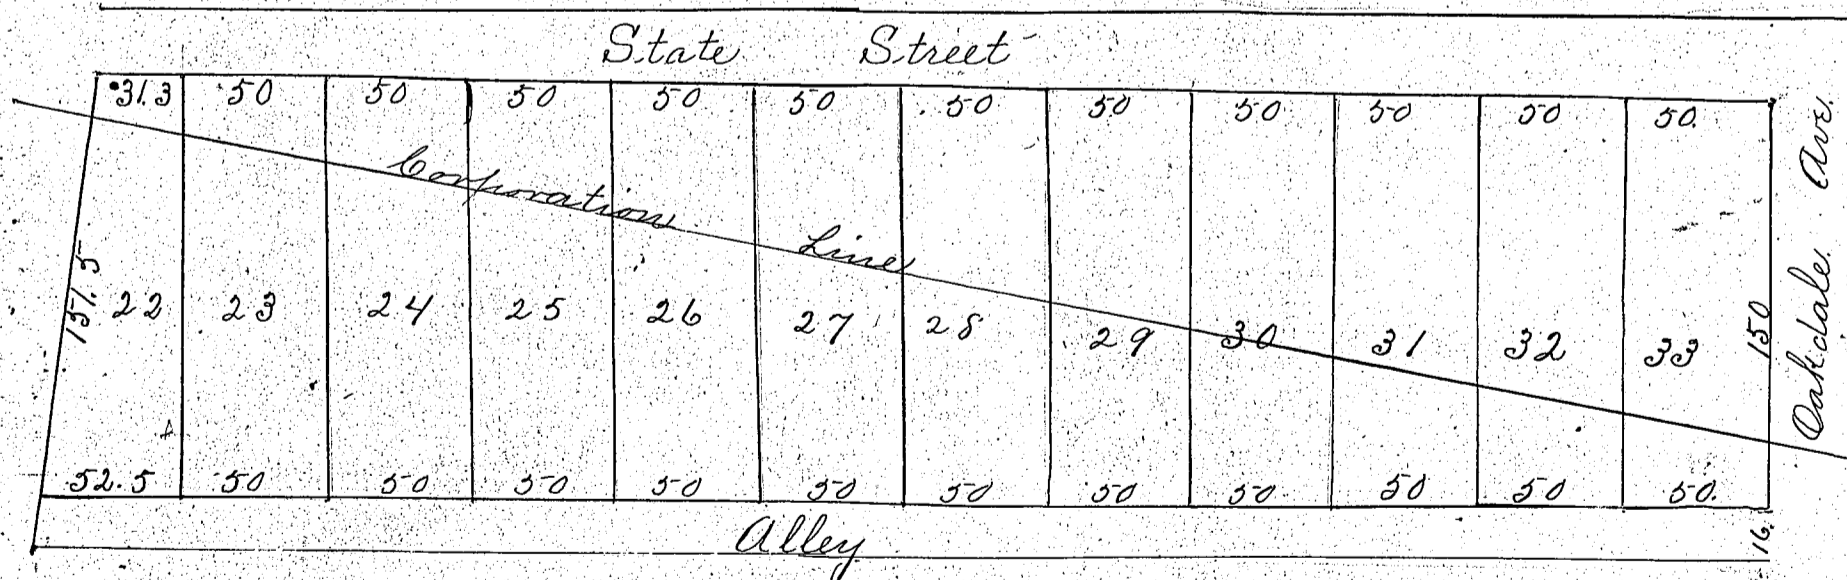 State Street
31.3 50 50 50 50 50 50 50 50 50 50 50
Corporation Line
151.5
22 23 24 25 26 27 28 29 30 31 32 33
150
Oakdale Ave.
52.5 50 50 50 50 50 50 50 50 50 50 50
Alley
16.